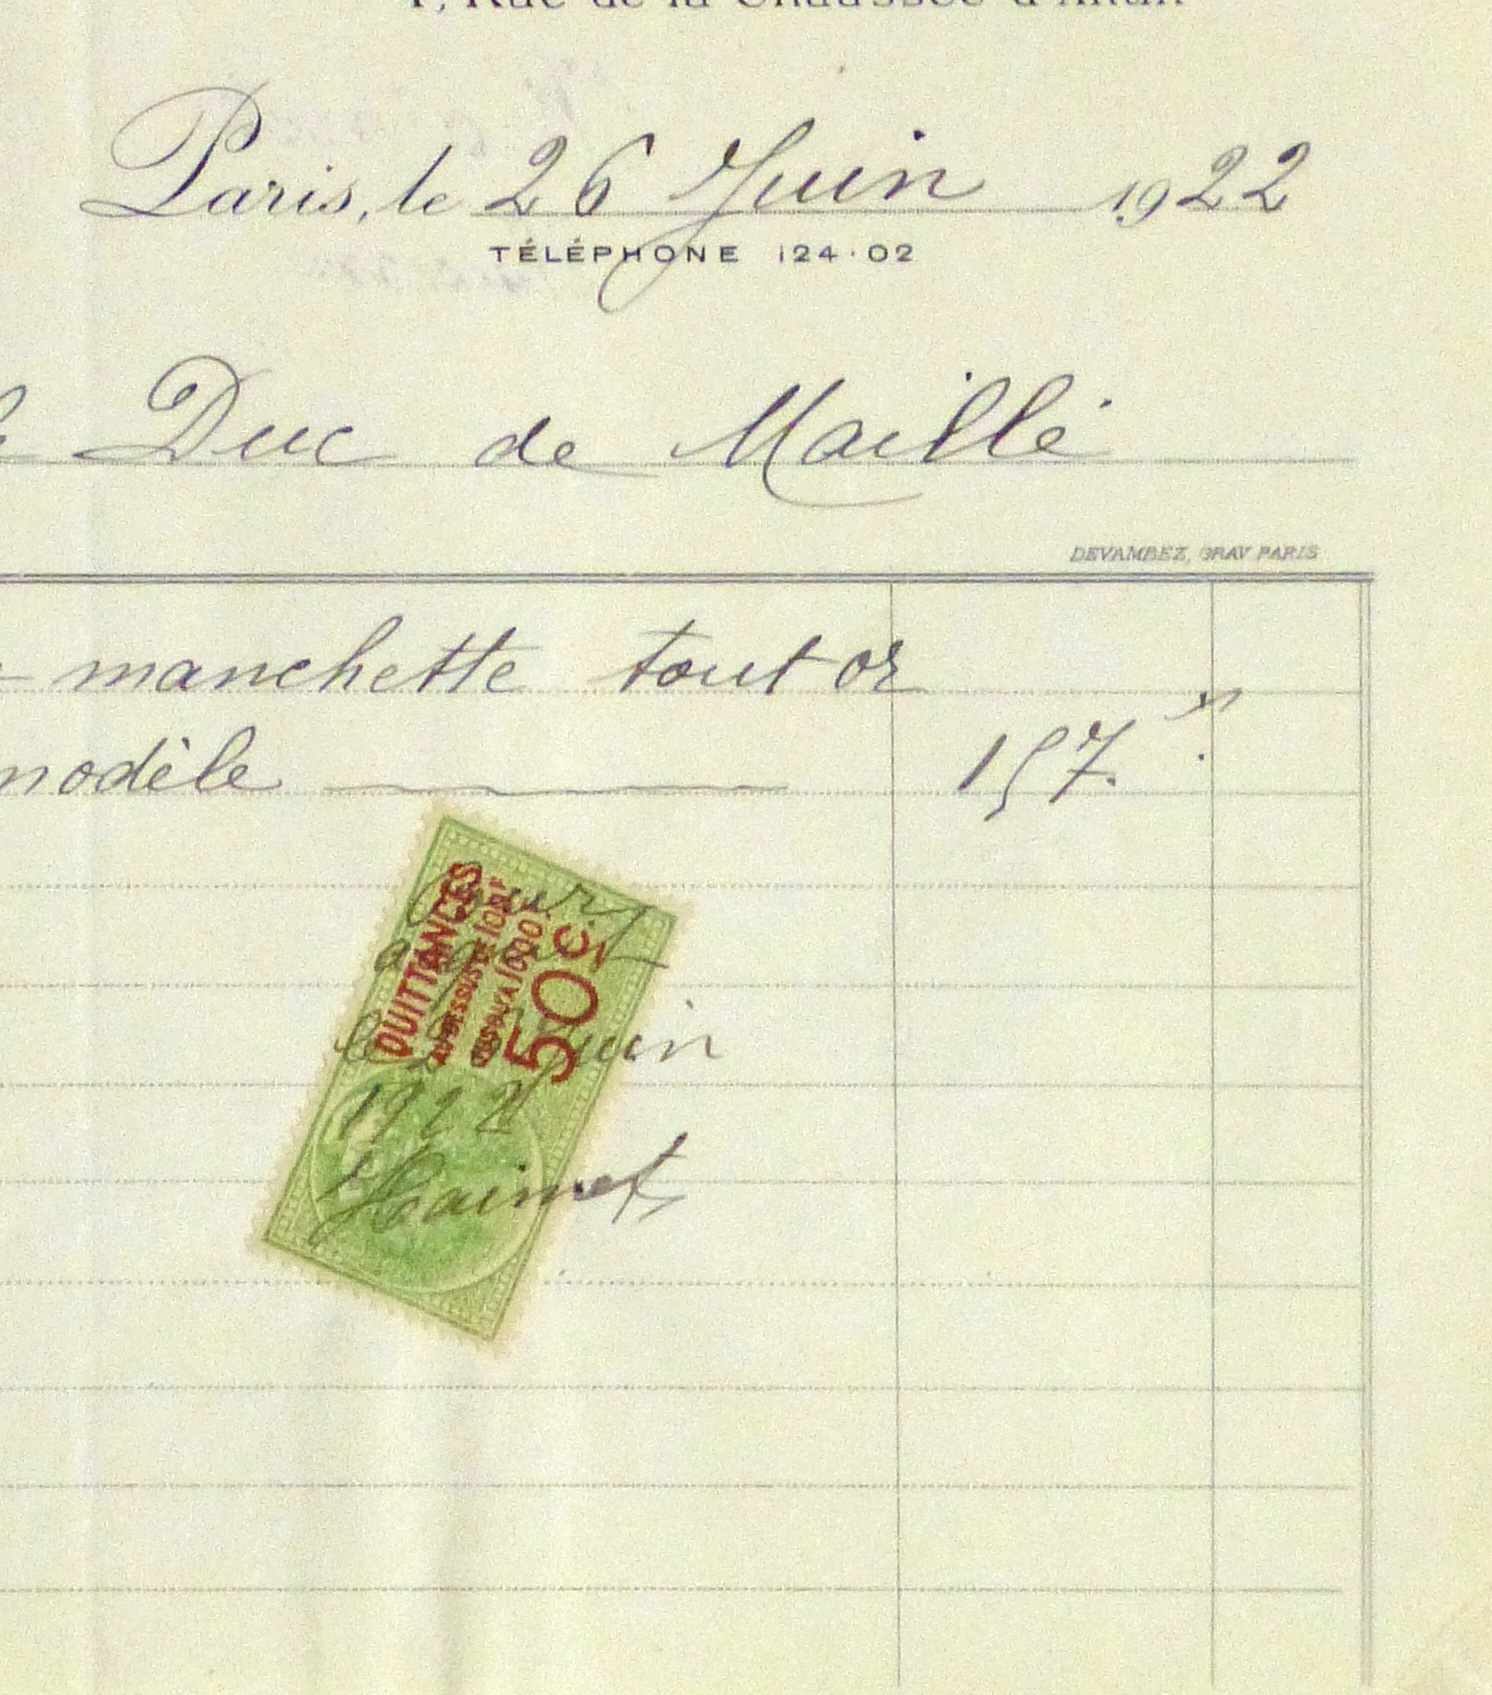 Rue de la Chaussée d'Antin
Paris, le 26 Juin 1922
TÉLÉPHONE 124·02
Duc de Maillé
DEVAMBEZ, GRAV PARIS
manchette tout or
modèle 157.
QUITTANCES
AU DESSUS DE 100F
JUSQU'À 1000F
50c.
Pour
acquit
le Juin
1922